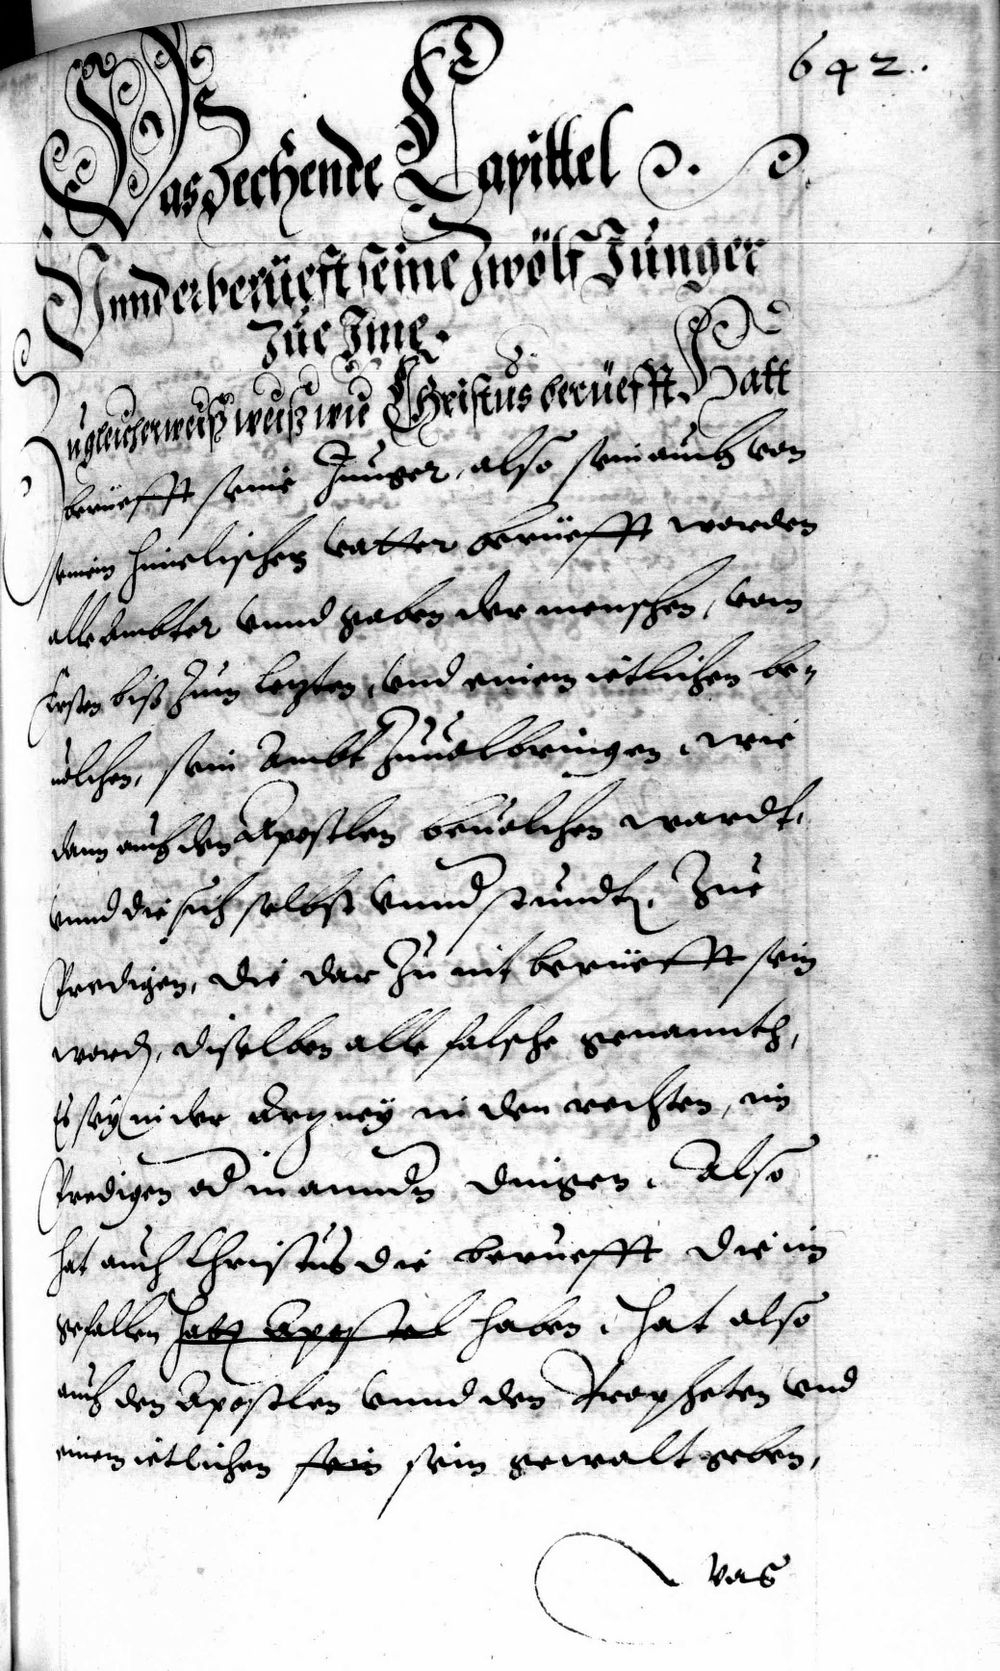 642.
Das Zechende Capittel
Vnnd er berüefft seine Zwölf Junger
Zue Ime.
Zugleicherweiß weiß wie Christus berüefft Hatt
berüefft seine Junger, also sein auch von
seinem himelischen vatter berüefft worden
alle ämbter vnnd gaben der menschen, vom
Ersten biß zum letzten, vnd einem ietlichen be-
uolchen, sein Ambt zuuolbringen, wie
dann auch den Apostlen beuolchen wardt,
vnnd die sich selbst vnnd stundt, Zue
Predigen, die dar Zu nit berüefft sein
word, diselben alle falsche genannth,
Es sey in der Artzney in den rechten, im
Predigen od in anndn dingen. Also
hat auch Christus die berüefft die im
gefallen hab Apostel haben, hat also
auch den Apostlen vnnd den Propheten vnd
einem ietlichen sein sein gewalt geben,
was